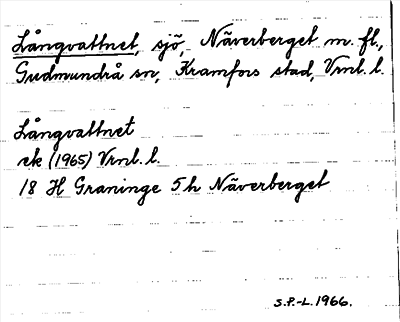 Långvattnet, sjö, Näverberget m. fl.,
Gudmundrå sn, Kramfors stad, Vrnl. l.
Långvattnet
ek (1965) Vrnl. l.
18 H Graninge 5h Näverberget
S.P.-L. 1966.